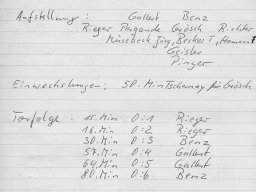 Aufstellung: Gallert Benz
Rieger Pergande Grösch Richter
Müsebeck Jörg, Becker T, Hamann F
Geisler
Pinger
Einwechslungen: 50. Min Tschernay für Grösch
Torfolge: 15. Min 0:1 Rieger
16. Min 0:2 Rieger
30. Min 0:3 Benz
57. Min 0:4 Gallert
64. Min 0:5 Gallert
80. Min 0:6 Benz